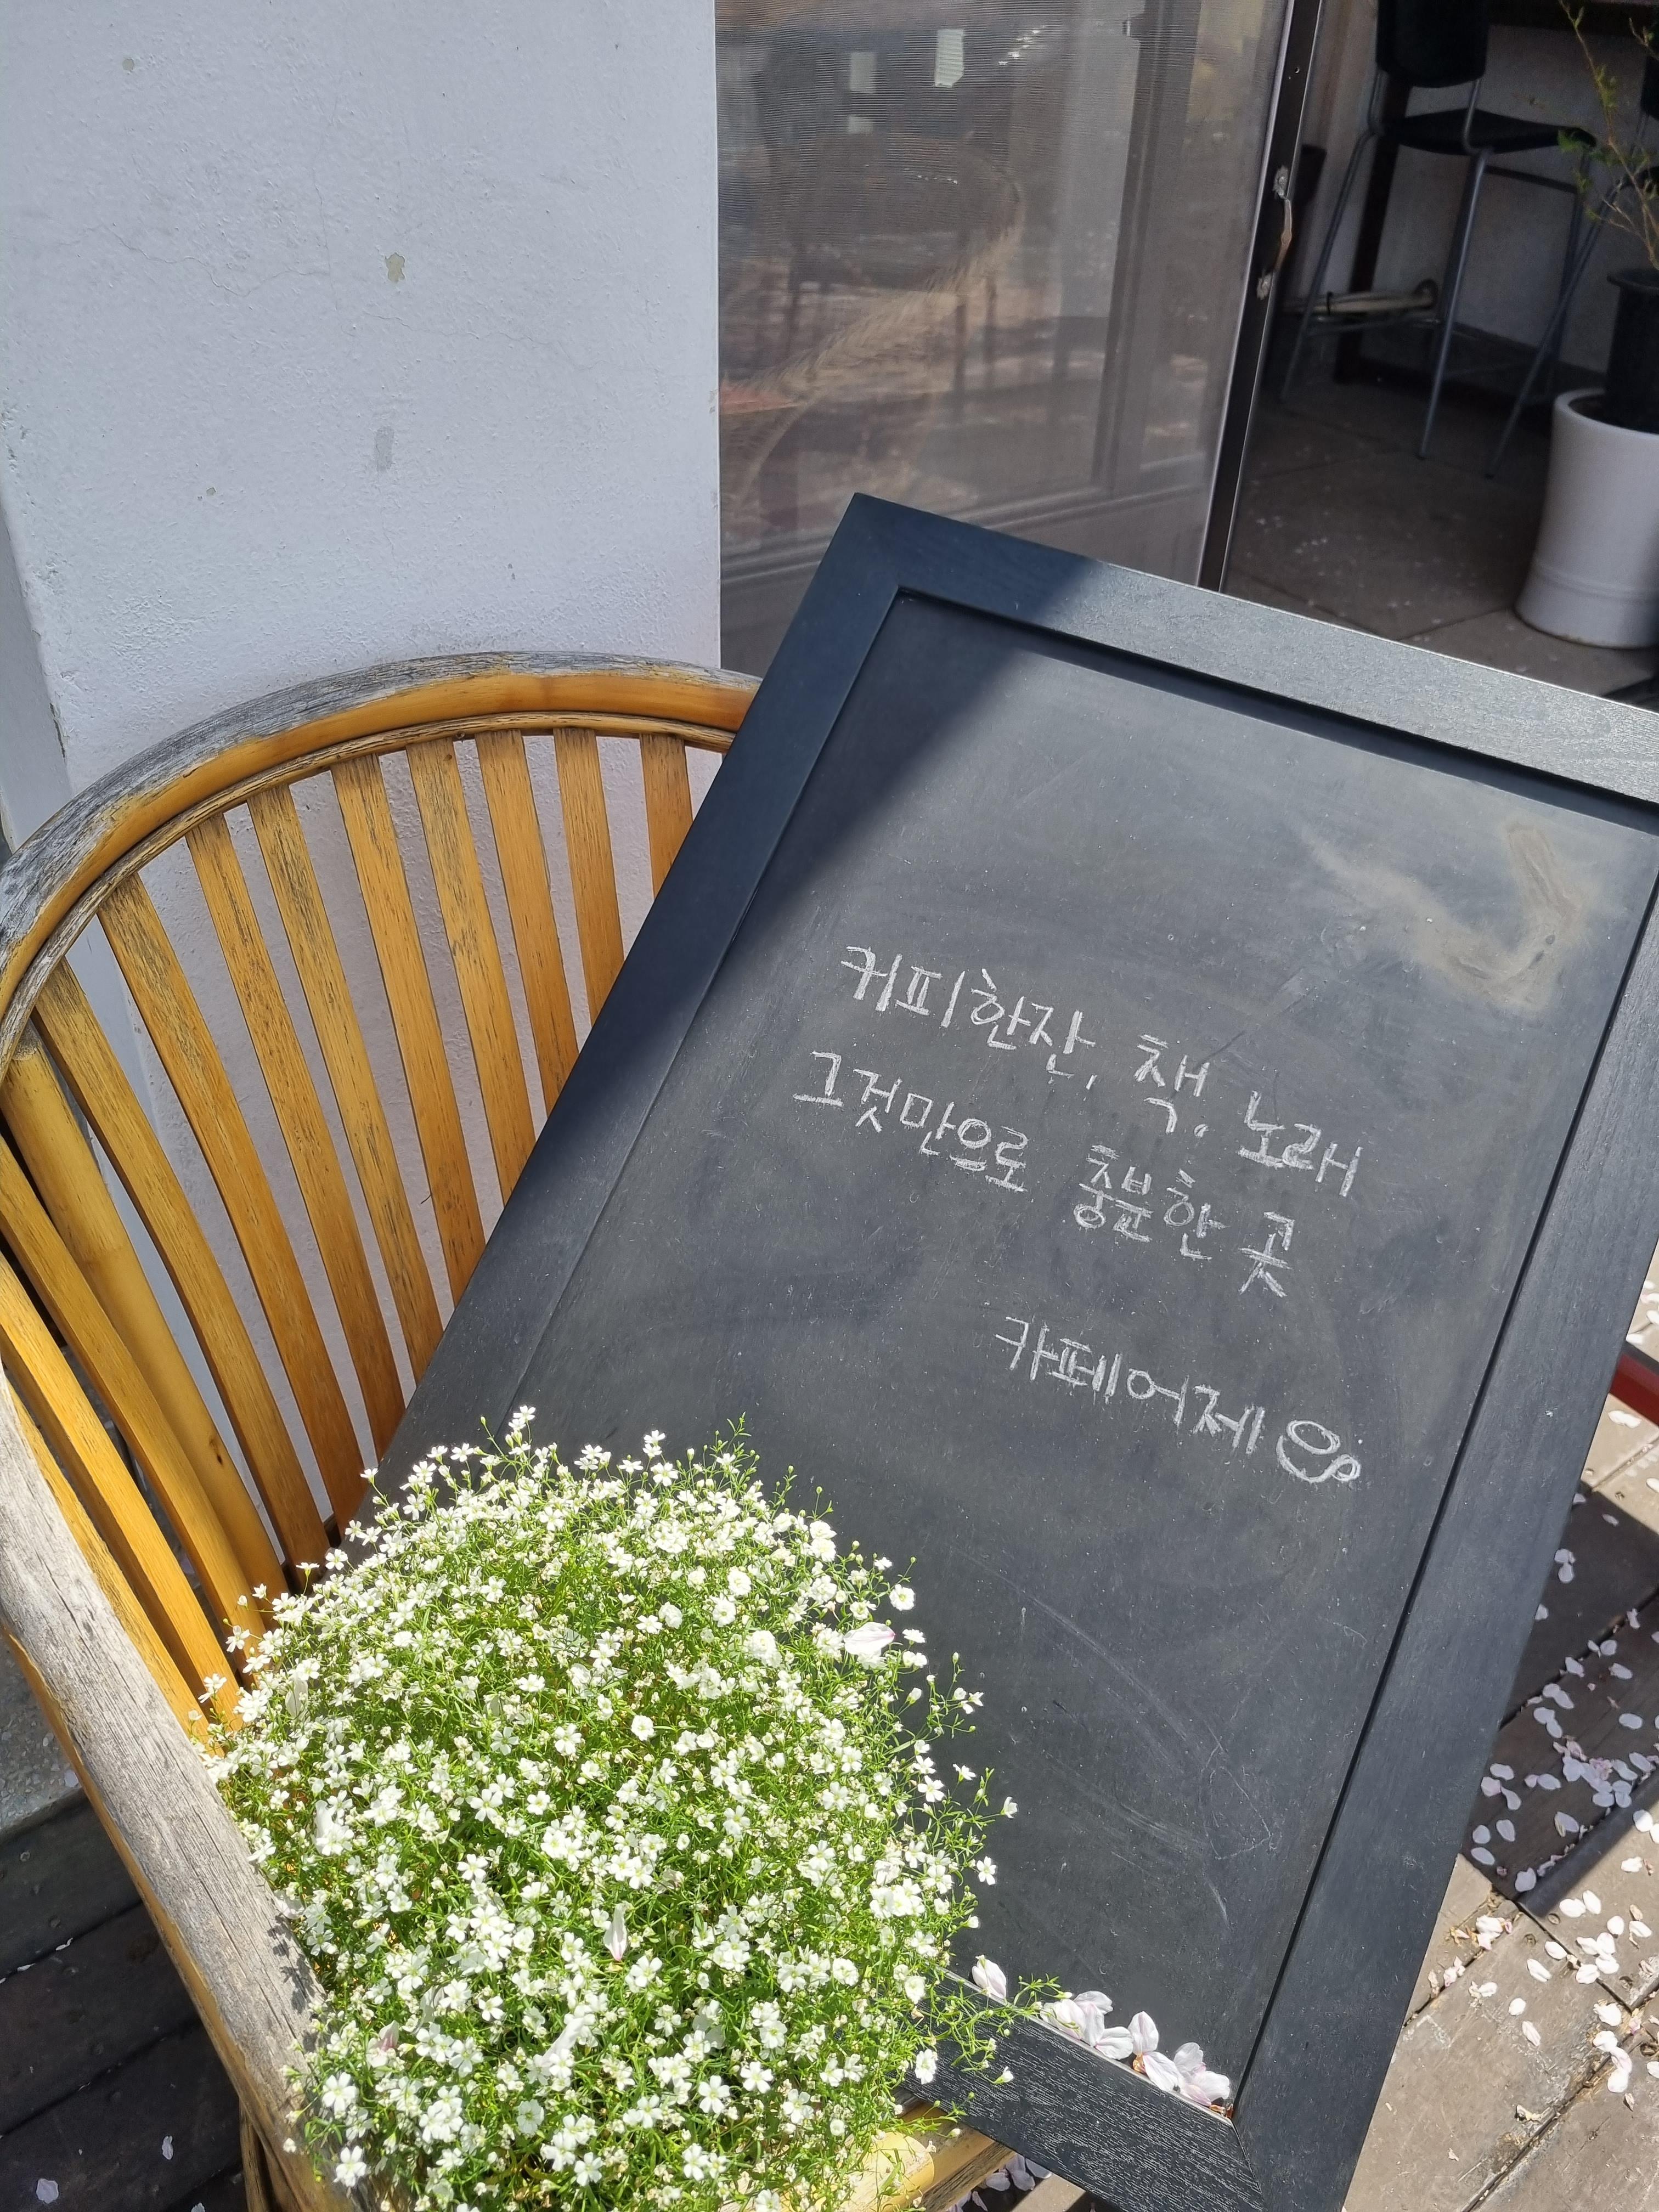 커피한잔, 책, 노래
그것만으로 충분한 곳
카페어제